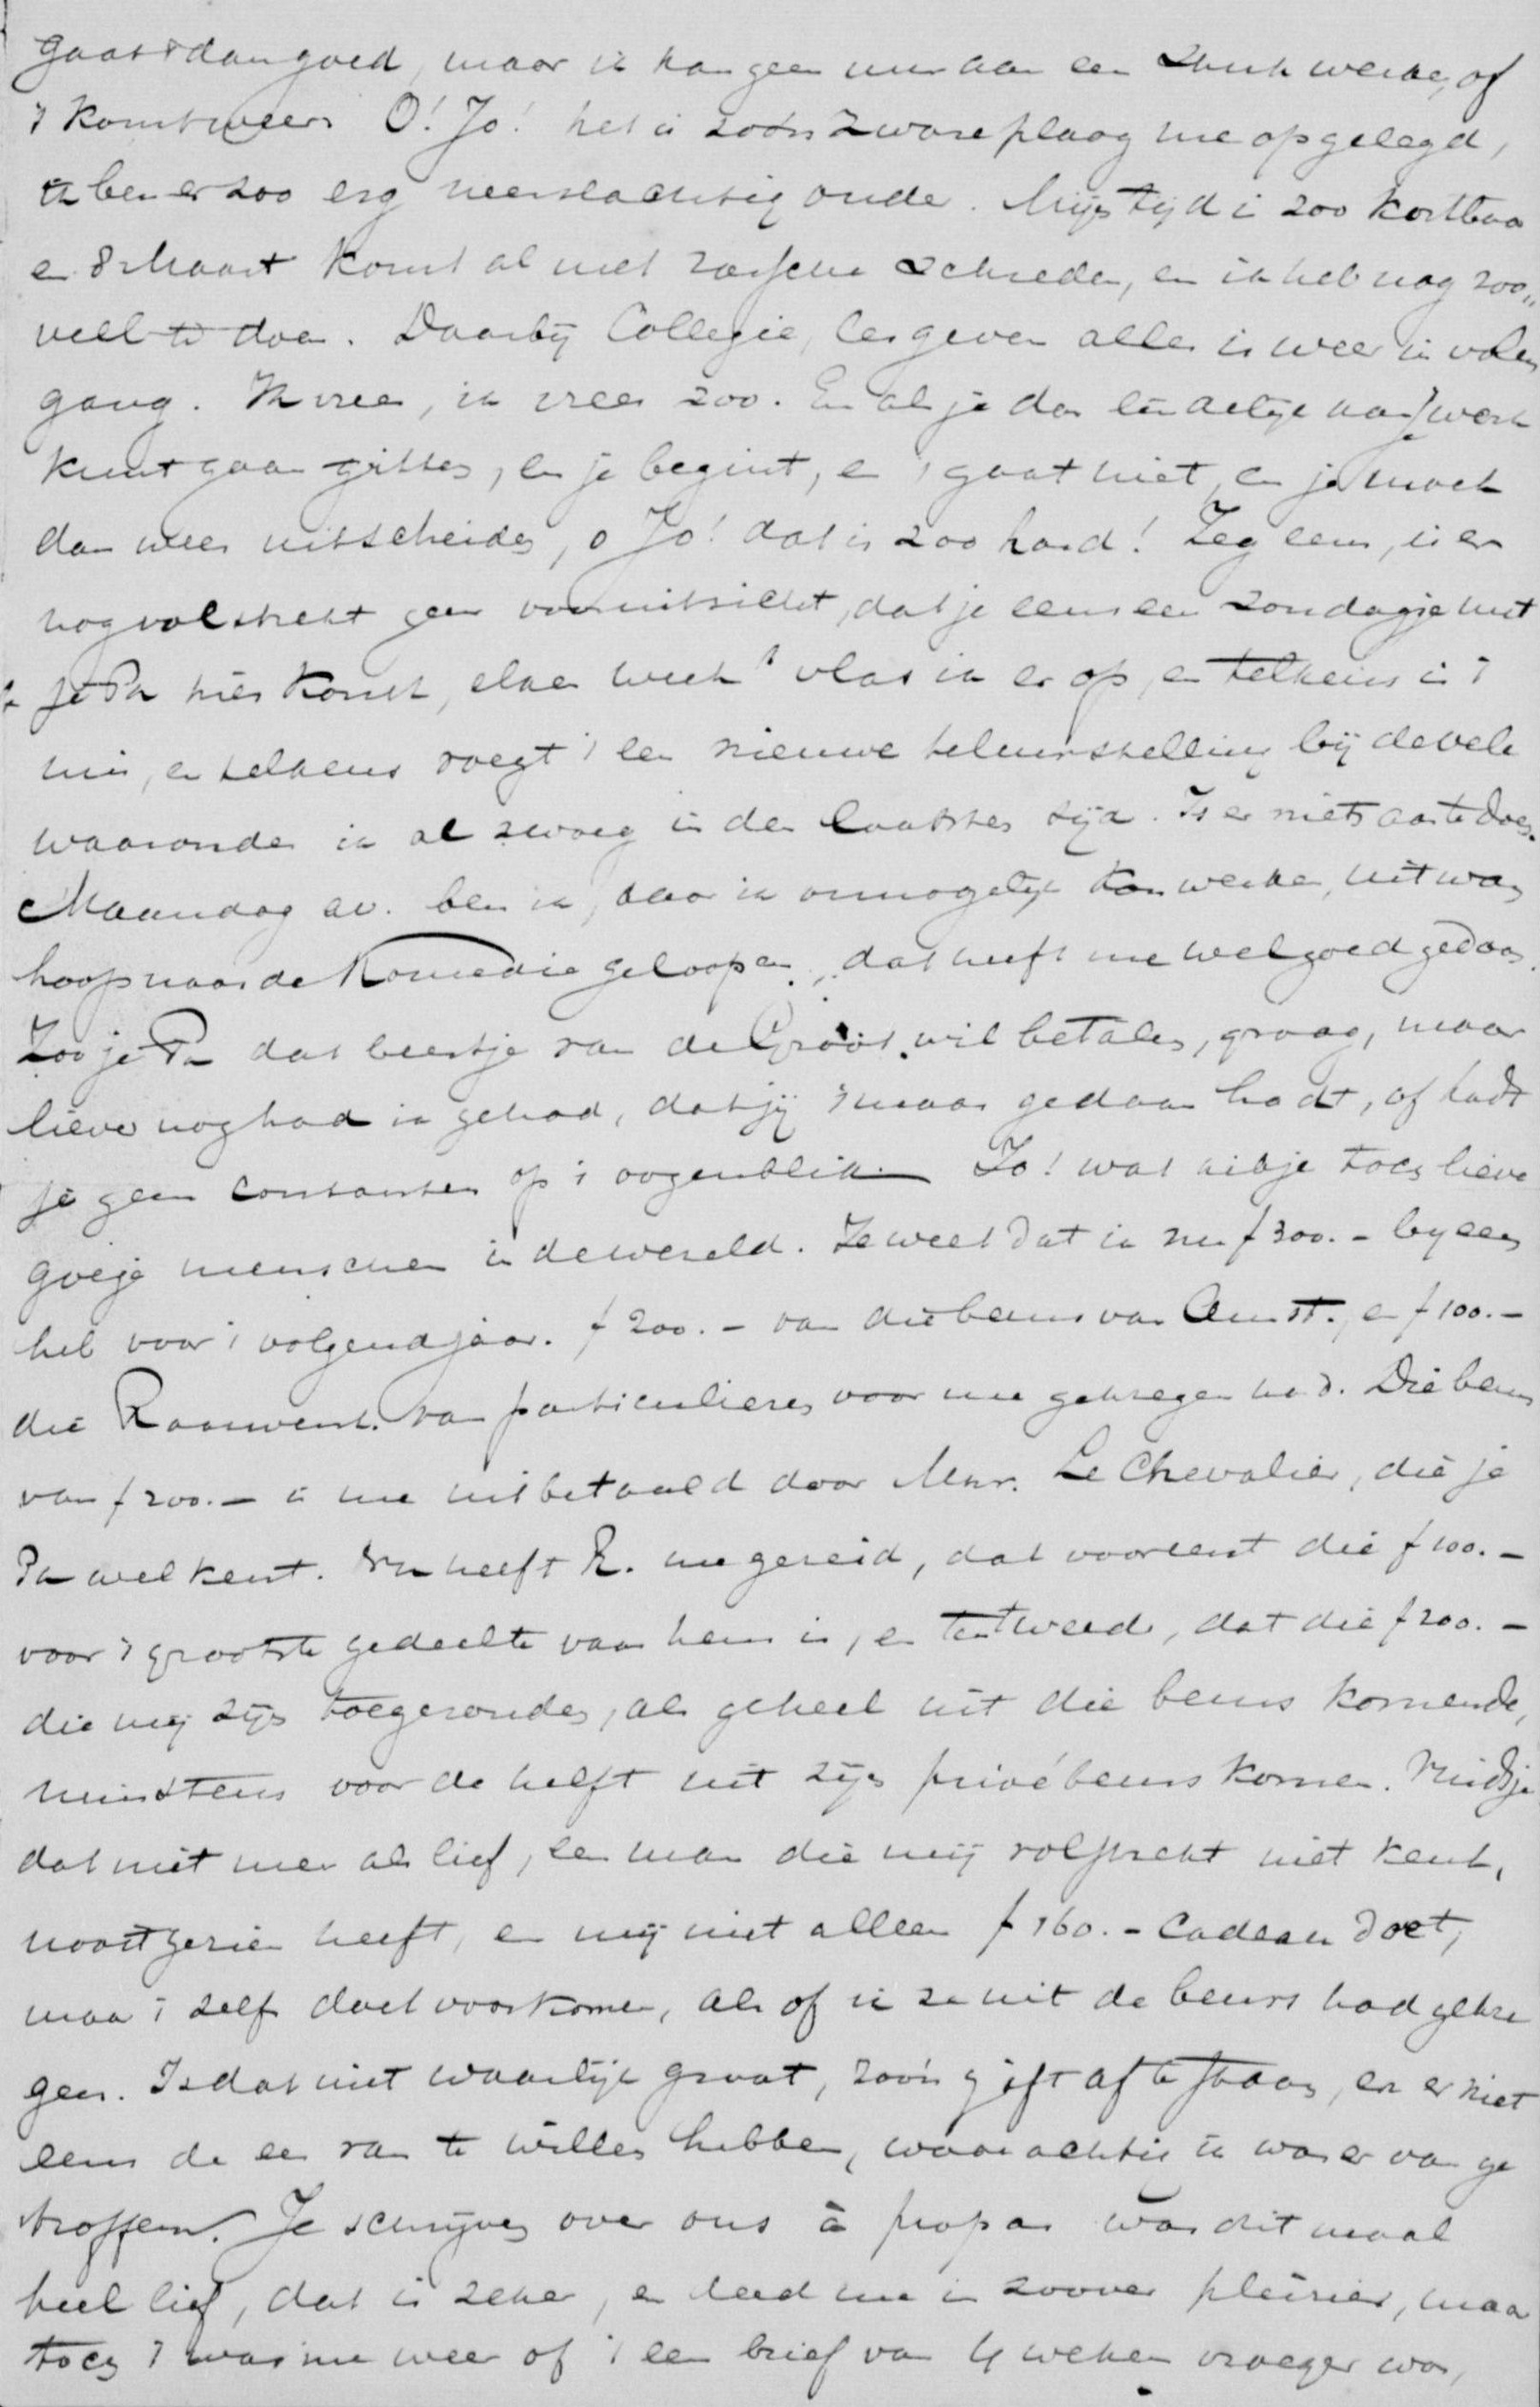 gaat 't dan goed, maar ik kan geen uur aan een stuk werken, of
't komt weer. O! Jo! het is zoo'n zware plaag me opgelegd,
ik ben er zoo erg neerslachtig onder. Mijn tijd is zoo kostbaar
en 8 Maart komt al met rassche schreden, en ik heb nog zoo„
veel te doen. Daarbij Collegie, lesgeven alles is weer in vollen
gang. Ik vrees, ik vrees zoo. En als je dan eindelijk aan 't werk
kunt gaan zitten, en je begint, en 't gaat niet, en je moet
dan weer uitscheiden, o Jo! dat is zoo hard! Zeg eens, is er
nog volstrekt geen vooruitzicht, dat je eens een Zondagje met
je Pa hier komt, elke week vlas ik er op, en telkens is 't
mis, en telkens voegt 't een nieuwe teleurstelling bij de vele
waaronder ik al zwoeg in den laatsten tijd. Is er niets aan te doen.
Maandag av. ben ik, daar ik onmogelijk kon werken, uit wan
hoop naar de Komedie geloopen, dat heeft me wel goed gedaan.
Zoo je Pa dat beestje van de Groot wil betalen, graag, maar
liever nog had ik gehad, dat jij 't maar gedaan hadt, of hadt
je geen contanten op 't oogenblik. Jo! wat heb je toch lieve
goeje menschen in de wereld. Je weet dat ik nu f 300.- byeen
heb voor 't volgend jaar. f 200.- van die beurs van Amst., en f 100.-
die Raauwenh. van particulieren voor me gekregen had. Die beurs
van f 200.- is me uitbetaald door Mnr. Le Chevalier, die je
Pa wel kent. Nu heeft R. me gezeid, dat vooreerst die f 100.-
voor 't grootste gedeelte van hem is, en ten tweede, dat die f 200.-
die mij zijn toegezonden, als geheel uit die beurs komende,
minstens voor de helft uit zijn privébeurs komen. Vindt je
dat niet meer als lief, een man die mij volstrekt niet kent,
nooit gezien heeft, en mij niet alleen f 160.- Cadeau doet,
maar 't zelfs doet voorkomen, als of ik ze uit de beurs had gekre
gen. Is dat niet waarlijk groot, zoo'n gift af te staan, en er niet
eens de eer van te willen hebben, waarachtig ik was er van ge
troffen. Je schrijven over ons à propos was ditmaal
heel lief, dat is zeker, en deed me in zoover pleizier, maar
toch 't was me weer of 't een brief van 4 weken vroeger was,